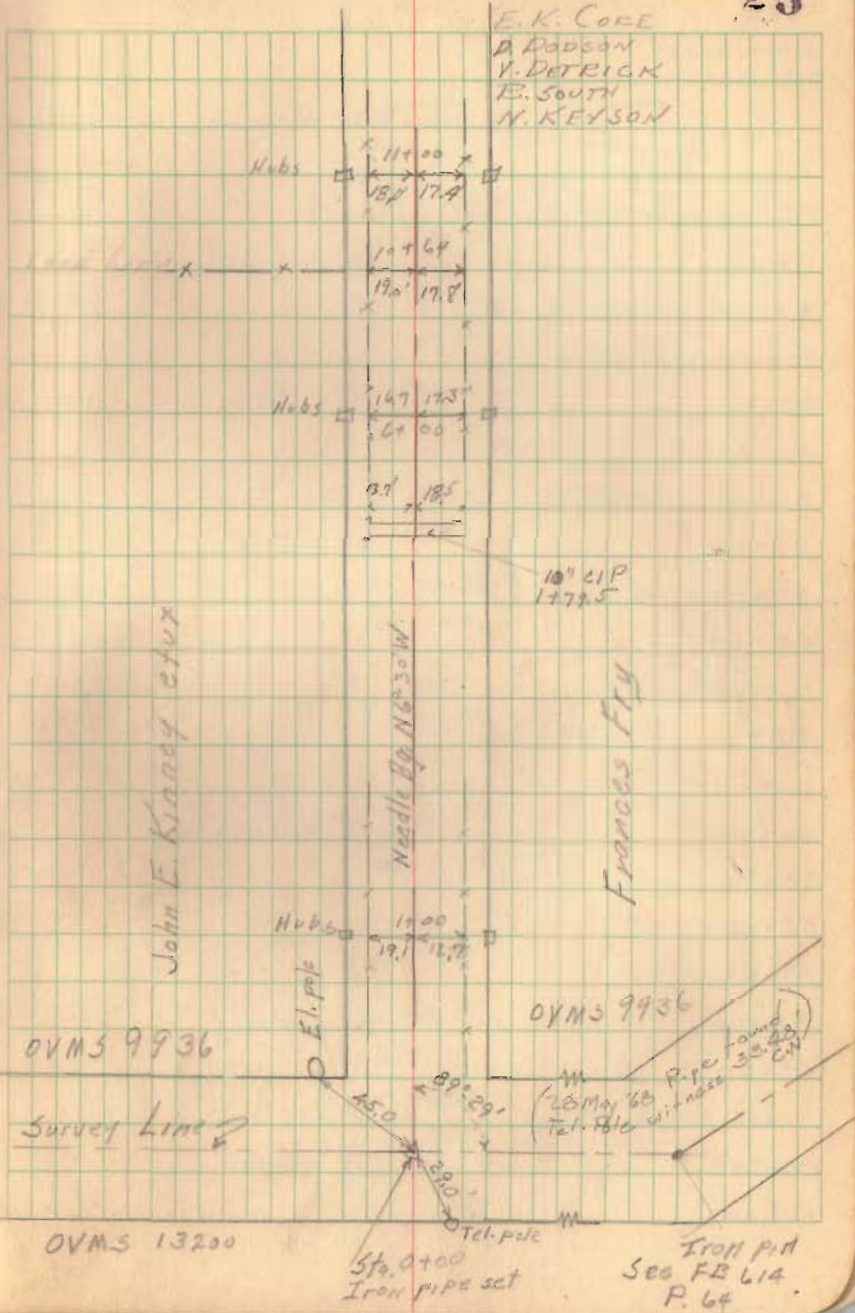 E. K. CORE
D. DODSON
V. DETRICK
E. SOUTH
N. KEYSON
Hubs
11+00
17.4
10+64
19.0' 17.8
Hubs
16.7 17.3
6+00
18.5
10" CIP
1+79.5
John E. Kinney etux
Needle Bg. N6°30'W
Frances Fry
Hubs
1+00
19.1
El. pole
OVMS 9936
OVMS 9936
89°29'
(28 May '68 Pipe found
Tel. Pole witness 33.48'
45.0
Survey Line
29.0
Tel. pole
OVMS 13200
Sta. 0+00
Iron pipe set
Iron pin
SEE FB 614
P. 64